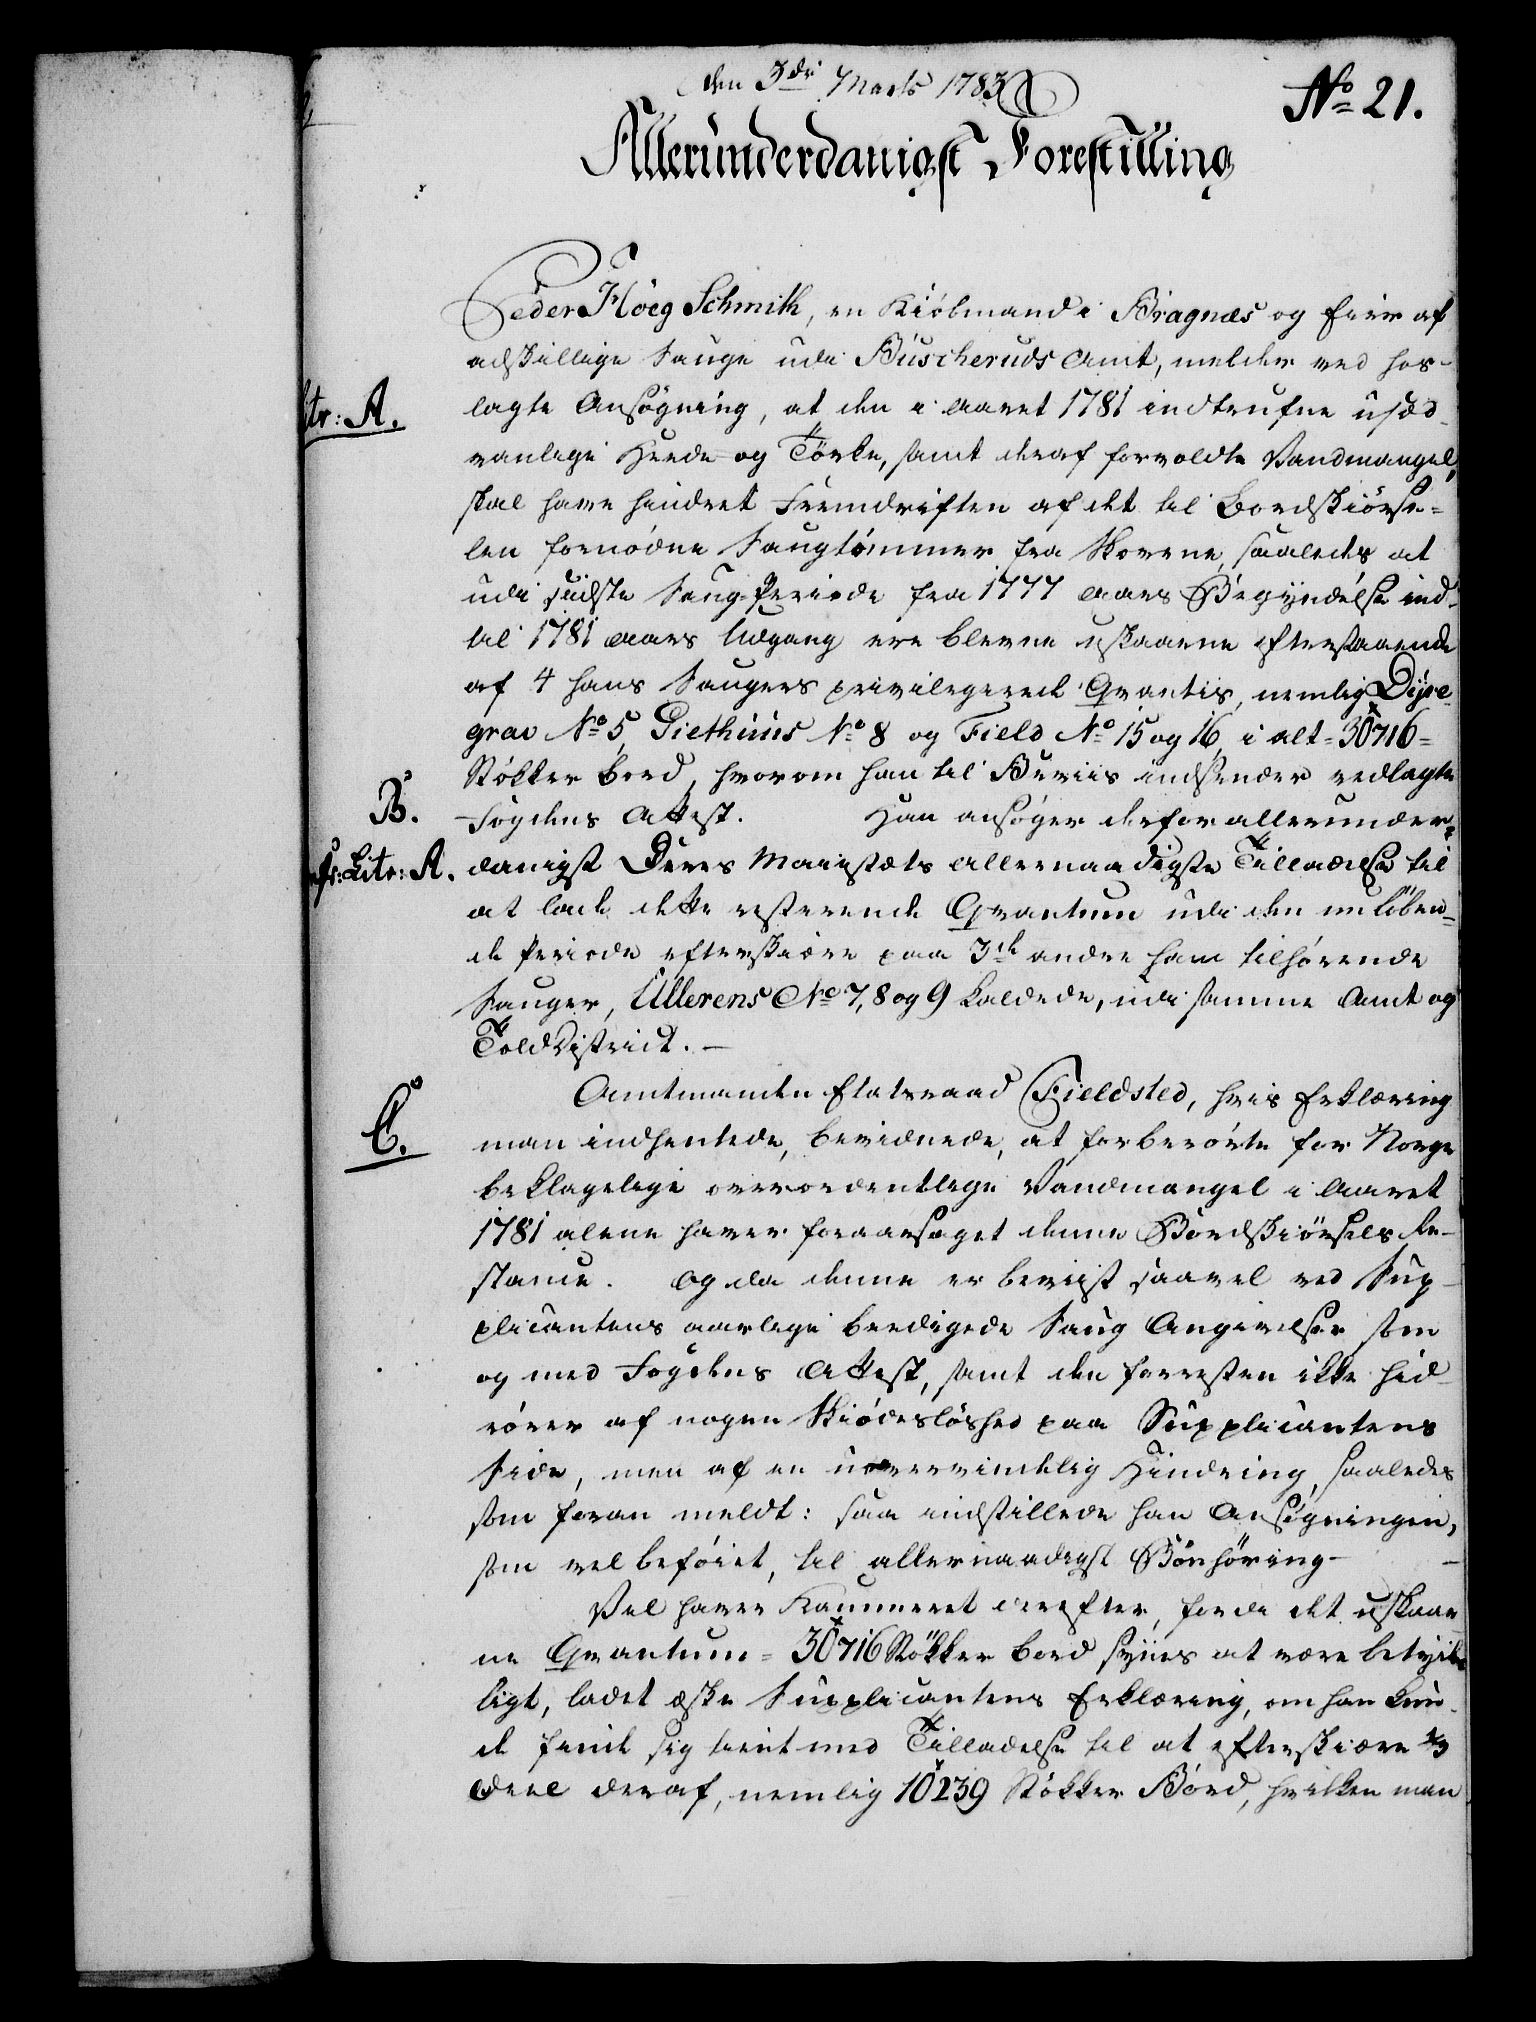 den 3die Marts 1783
No 21.
Allerunderdanigst Forestilling
Peder Höeg Schmith, en Kiöbmand i Bragnæs og Eier af
adskillige Sauge udi Buscheruds Amt, melder ved hos-
Litr: A.
lagte Ansögning, at den i Aaret 1781 indtrufne usæd-
vanlige Heede og Törke, samt deraf forvoldte Vandmangel,
skal have hindret Fremdriften af det til Bordskiörse-
len fornödne Saugtömmer fra Skovene, saaledes at
udi sidste Saug-Periode fra 1777 Aars Begyndelse ind-
til 1781 Aars Udgang ere blevne uskaarne efterstaaende
af 4 hans Saugers privilegerede Qvantis, nemlig Dyre-
grav No 5, Giethuus No 8 og Field No 15 og 16, i alt = 30716 =
Stökker Bord, hvorom han til Beviis indsender vedlagte
B.
Fogdens Attest. Han ansöger derfor allerunder-
Litr: A.
danigst Deres Majestæts allernaadigste Tilladelse til
at lade dette resterende Qvantum udi den nu löben-
de Periode efterskiære paa 3de andre ham tilhörende
Sauger, Ullerens No 7, 8 og 9 kaldede, udi samme Amt og
Told District. —
C.
Amtmanden Etatsraad Fieldsted, hvis Erklæring
man indhentede, bevidnede, at forberörte for Norge
beklagelige overordentlige Vandmangel i Aaret
1781 alene haver foraarsaget denne Bordskiörsels Re-
stance. Og da denne er beviist saavel ved Sup-
plicantens aarlige beedigede Saug Angivelser som
og med Fogdens Attest, samt den forresten ikke hid-
rörer af nogen Skiödeslöshed paa Supplicantens
Side, men af en uovervindelig Hindring, saaledes
som foran meldt: saa indstillede han Ansögningen,
som vel beföiet, til allernaadigst Bönhöring —
Vel haver Kammeret derefter, fordi det uskaar-
ne Qvantum = 30716 Stökker Bord synes at være betyde-
ligt, ladet æske Supplicantens Erklæring, om han kun-
de finde sig tient med Tilladelse til at efterskiære 1/3
Deel deraf, nemlig 10239 Stökker Bord, hvilken man